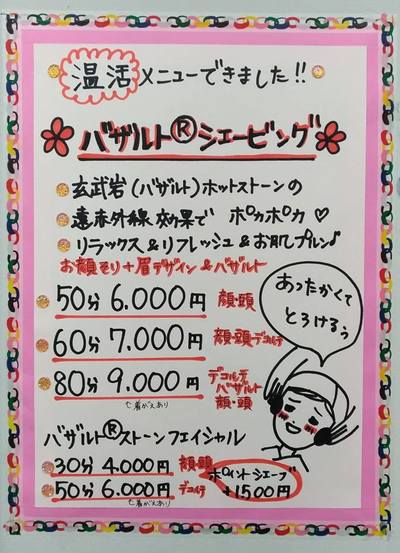 温活メニューできました!!
バザルト®シェービング
玄武岩(バザルト)ホットストーンの
遠赤外線効果で ポカポカ♡
リラックス&リフレッシュ&お肌プルン♪
お顔そり+眉デザイン&バザルト
50分 6.000円 顔・頭
60分 7.000円 顔・頭・デコルテ
80分 9.000円 デコルテ バザルト 顔・頭
着がえあり
あったかくて
とろけるぅ
バザルト®ストーンフェイシャル
30分 4.000円 顔・頭
50分 6.000円 デコルテ
着がえあり
ポイントシェーブ
+1500円